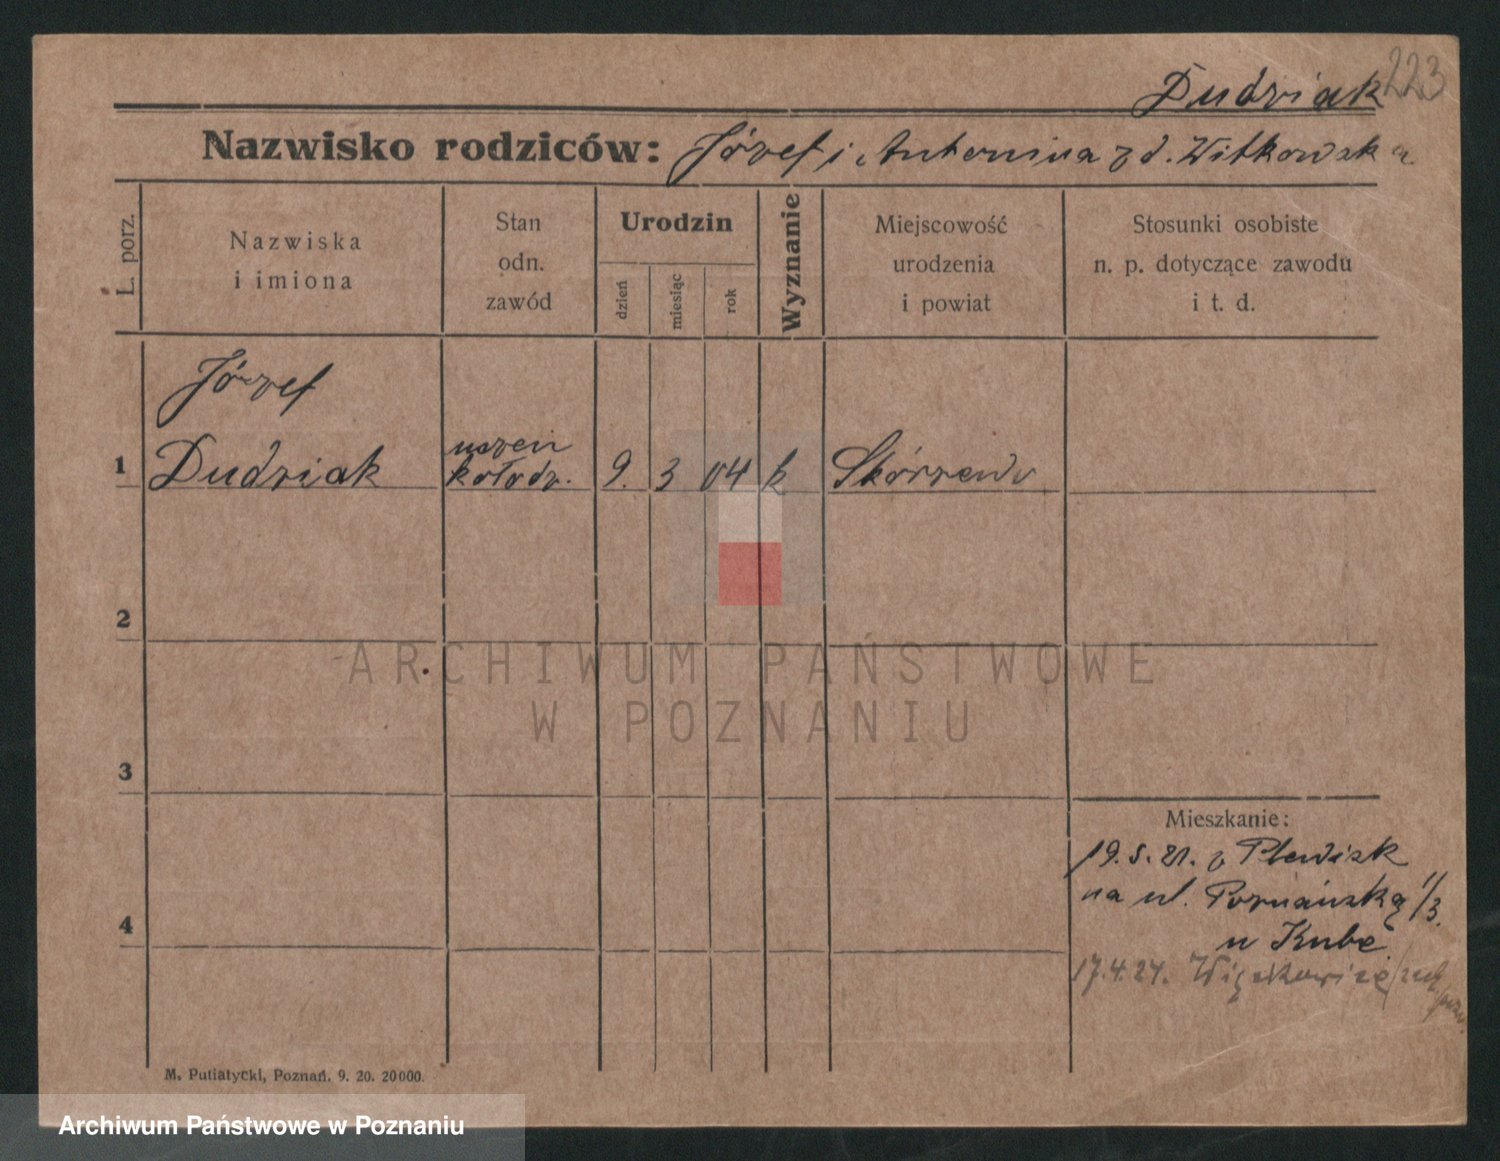 223
Dudziak
Nazwisko rodziców: Józef i Antonina z d. Witkowska
L. porz.
Nazwiska
i imiona
Stan
odn.
zawód
Urodzin
dzień
miesiąc
rok
Wyznanie
Miejscowość
urodzenia
i powiat
Stosunki osobiste
n. p. dotyczące zawodu
i t. d.
Józef
1 Dudziak
uczeń
kołodz.
9. 3 04 k Skórzewo
2
ARCHIWUM PAŃSTWOWE
W POZNANIU
3
Mieszkanie:
19.5.21. z Plewisk
na ul. Poznańską 1/3.
u Kube
4
17.4.24.
M. Putiatycki, Poznań. 9. 20. 20000.
Archiwum Państwowe w Poznaniu